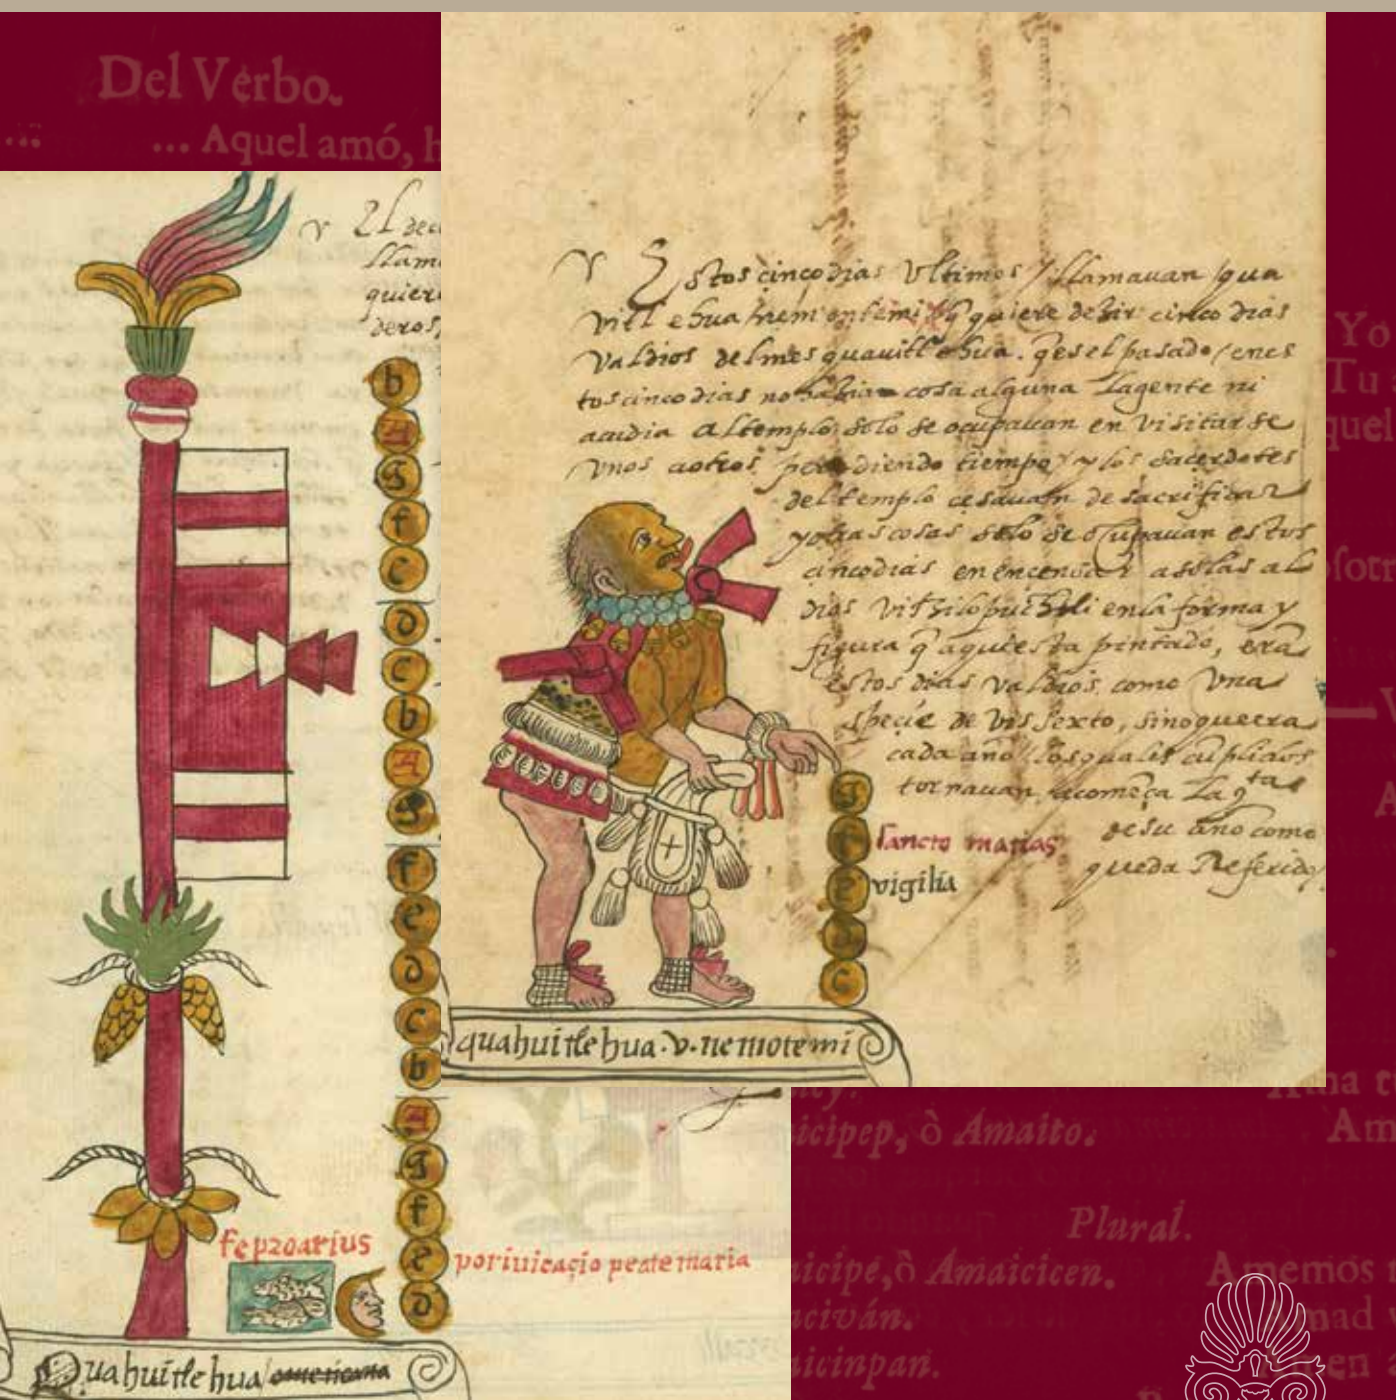 Del Verbo.
... ... Aquel amó, h
v El dec
llam
quier
deros
b
A
g
f
e
d
c
b
A
g
f
e
d
c
b
A
g
f
e
d
fepzoarius
poriuicaçio peate maria
Quahuitlehua
v Estos cinco dias Vltimos / llamauan qua
vitl ehua nemontemi q̃ quiere dezir cinco dias
Valdios del mes quauitl ehua. q̃ es el pasado / enes
tos cinco dias no hazia cosa alguna la gente ni
acudia al templo solo se ocupauan en visitarse
vnos aotros perdiendo tiempo y los sacerdotes
del templo cesauan de sacrificar
y otras cosas solo se ocupauan estos
cinco dias en encensar a solas al
dios en la forma y
figura q̃ aqui esta pintado, erã
estos dias valdios como vna
specie de vissexto, sino que era
cada año los quales cũplidos
tornauan acomẽça la q̃ta
de su año como
queda Referido
g
f
e
d
c
sancto matias
vigilia
quahuitlehua · v · nemotemi
Yo
Tu
quel
sotr
A
icipep, ò Amaito.
Am
Plural.
icipe, ò Amaicicen.
Amemos
nciván.
mad
icinpan.